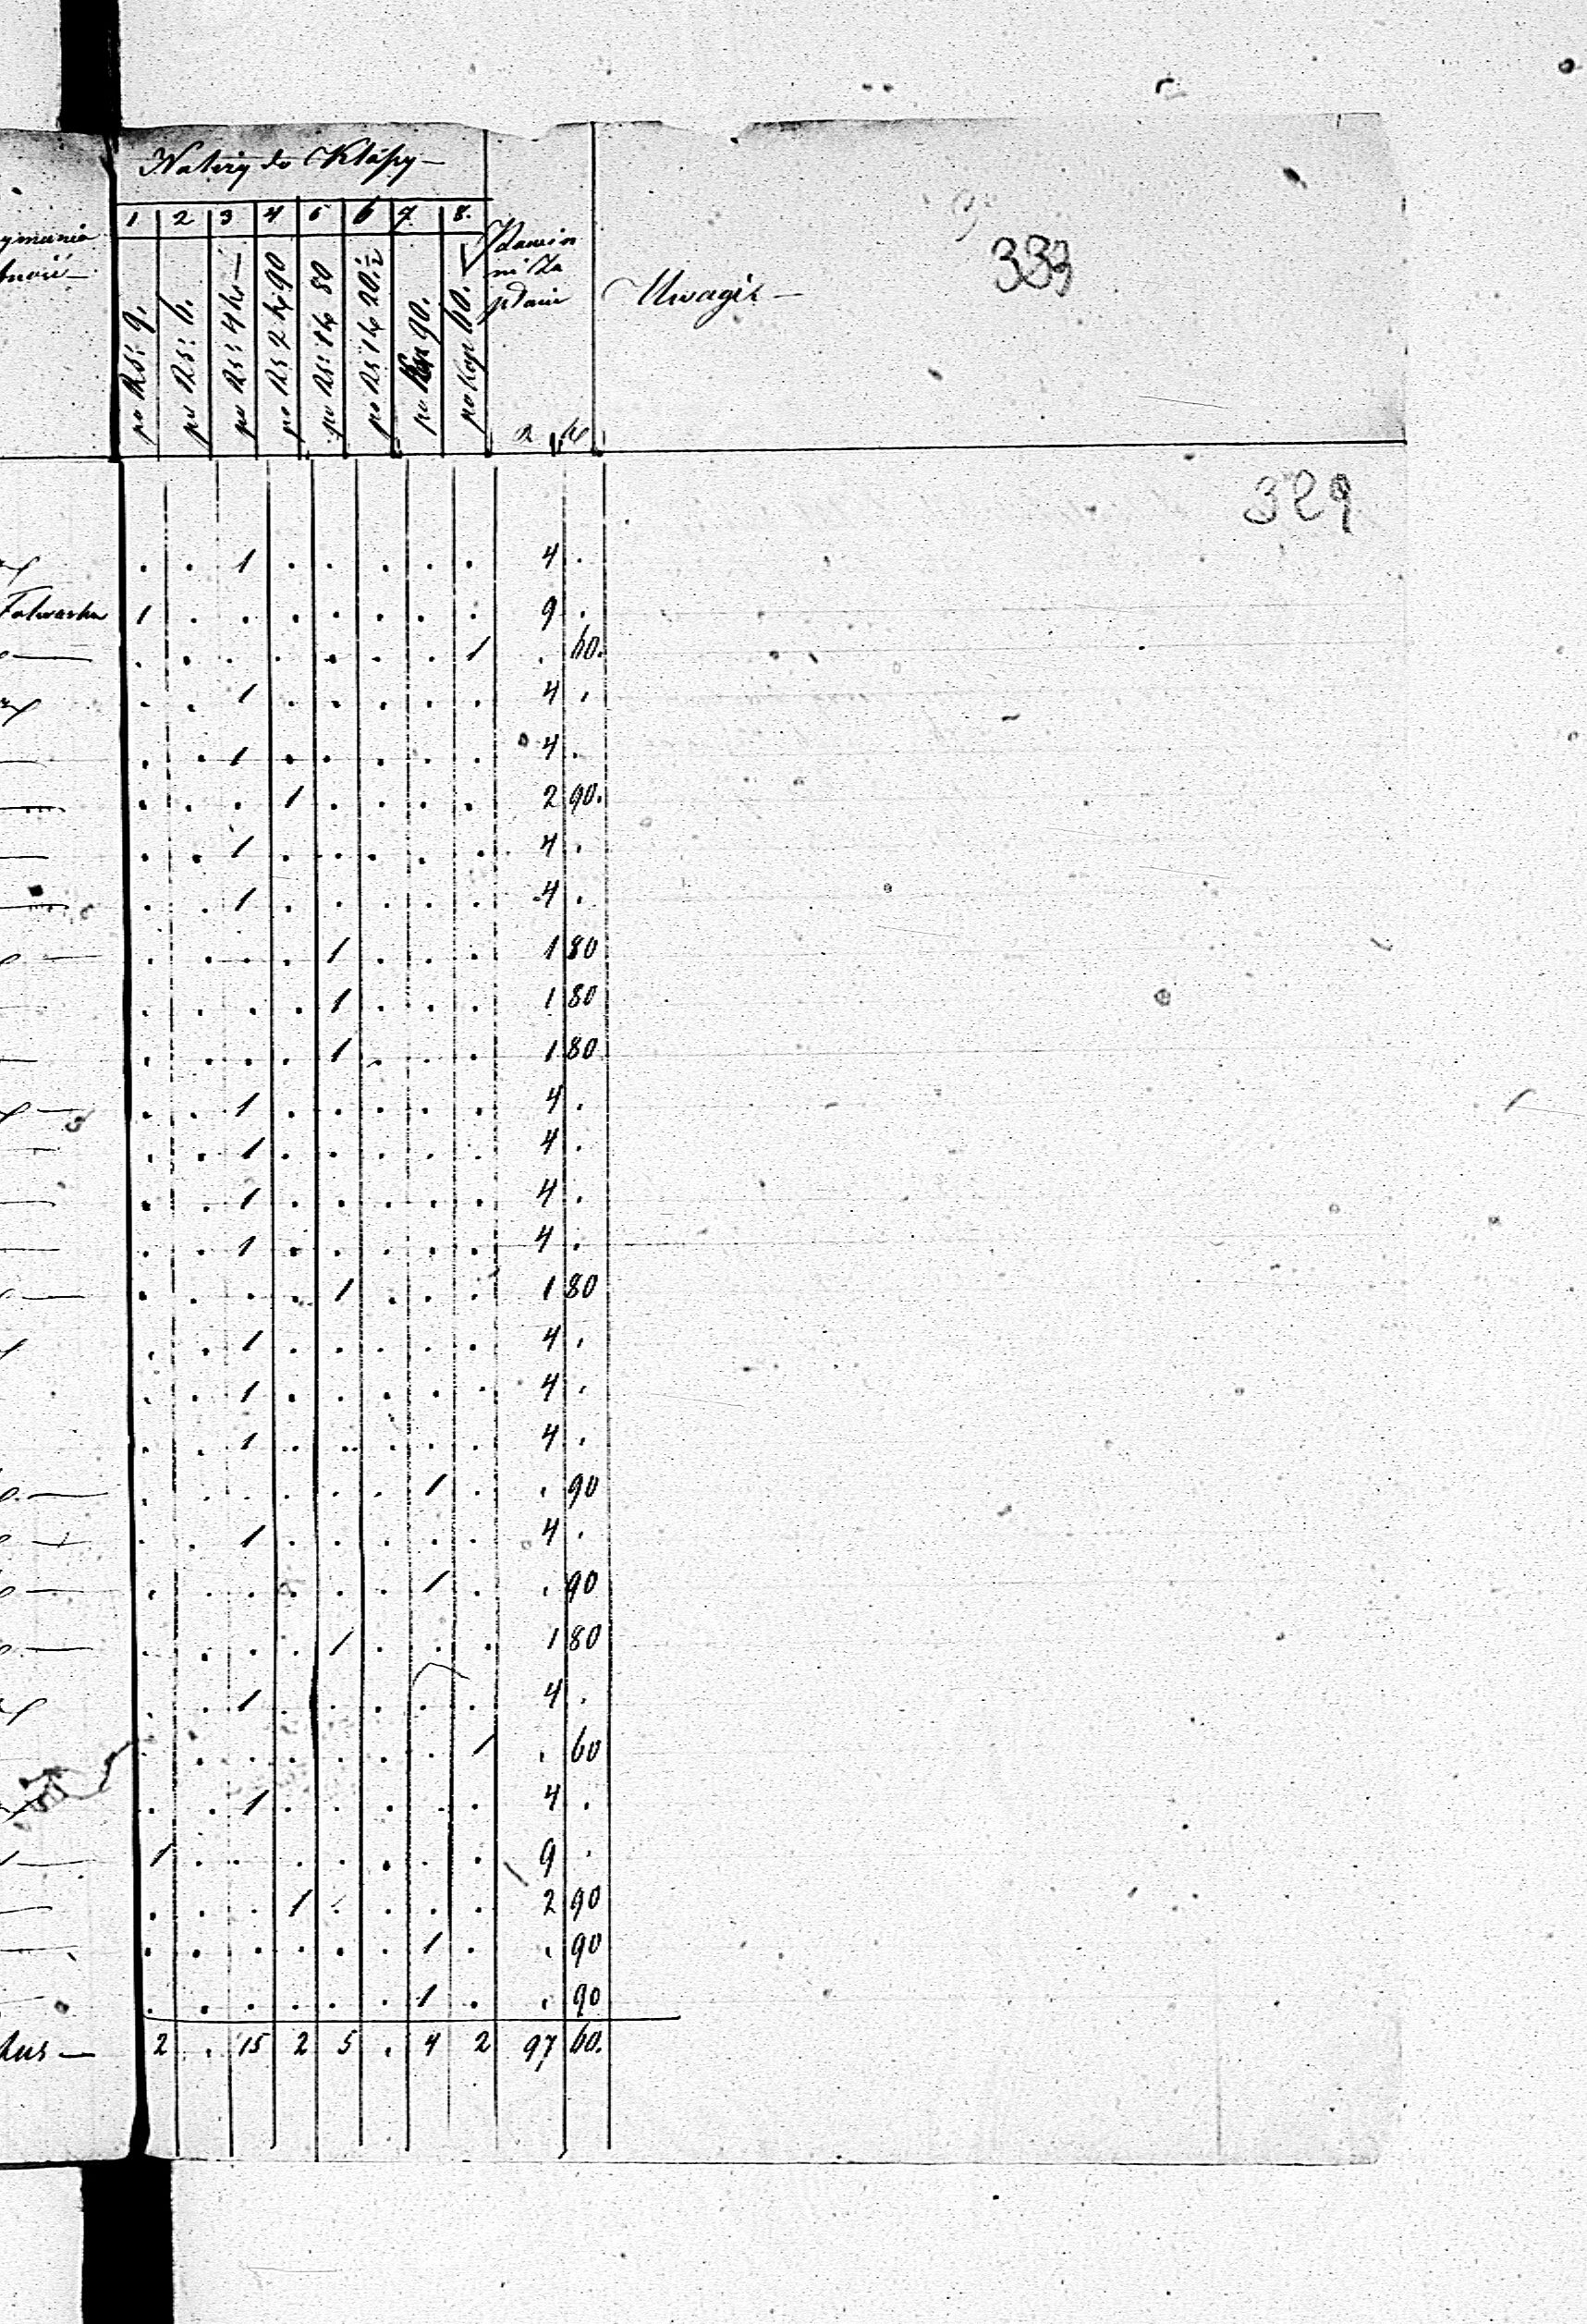 Należy do Klassy
333
1 2 3 4 5 6 7 8.
ymania
Powinien
ni za
płacić
Uwagi
po Rs: 9.
po Rs: 6.
po Rs: 4 k. —
po Rs 2 k 90
po Rs: 1 k 80
po Rs 1 k 20
po Kop 90.
po Kop 60.
R k
329
. . 1 . . . . . 4 .
Folwarku 1 . . . . . . . 9 .
. . . . . . . 1 . 60.
. . 1 . . . . . 4 .
. . 1 . . . . . 4 .
. . . 1 . . . . 2 90.
. . 1 . . . . . 4 .
. . 1 . . . . . 4 .
. . . . 1 . . . 1 80
. . . . 1 . . . 1 80
. . . . 1 . . . 1 80
. . 1 . . . . . 4 .
. . 1 . . . . . 4 .
. . 1 . . . . . 4 .
. . 1 . . . . . 4 .
. . . . 1 . . . 1 80
. . 1 . . . . . 4 .
. . 1 . . . . . 4 .
. . 1 . . . . . 4 .
. . . . . . 1 . . 90
. . 1 . . . . . 4 .
. . . . . . 1 . . 90
. . . . 1 . . . 1 80
. . 1 . . . . . 4 .
. . . . . . . 1 . 60
. . 1 . . . . . 4 .
1 . . . . . . . 9 .
. . . 1 . . . . 2 90
. . . . . . 1 . . 90
. . . . . . 1 . . 90
2 . 15 2 5 . 4 2 97 60.